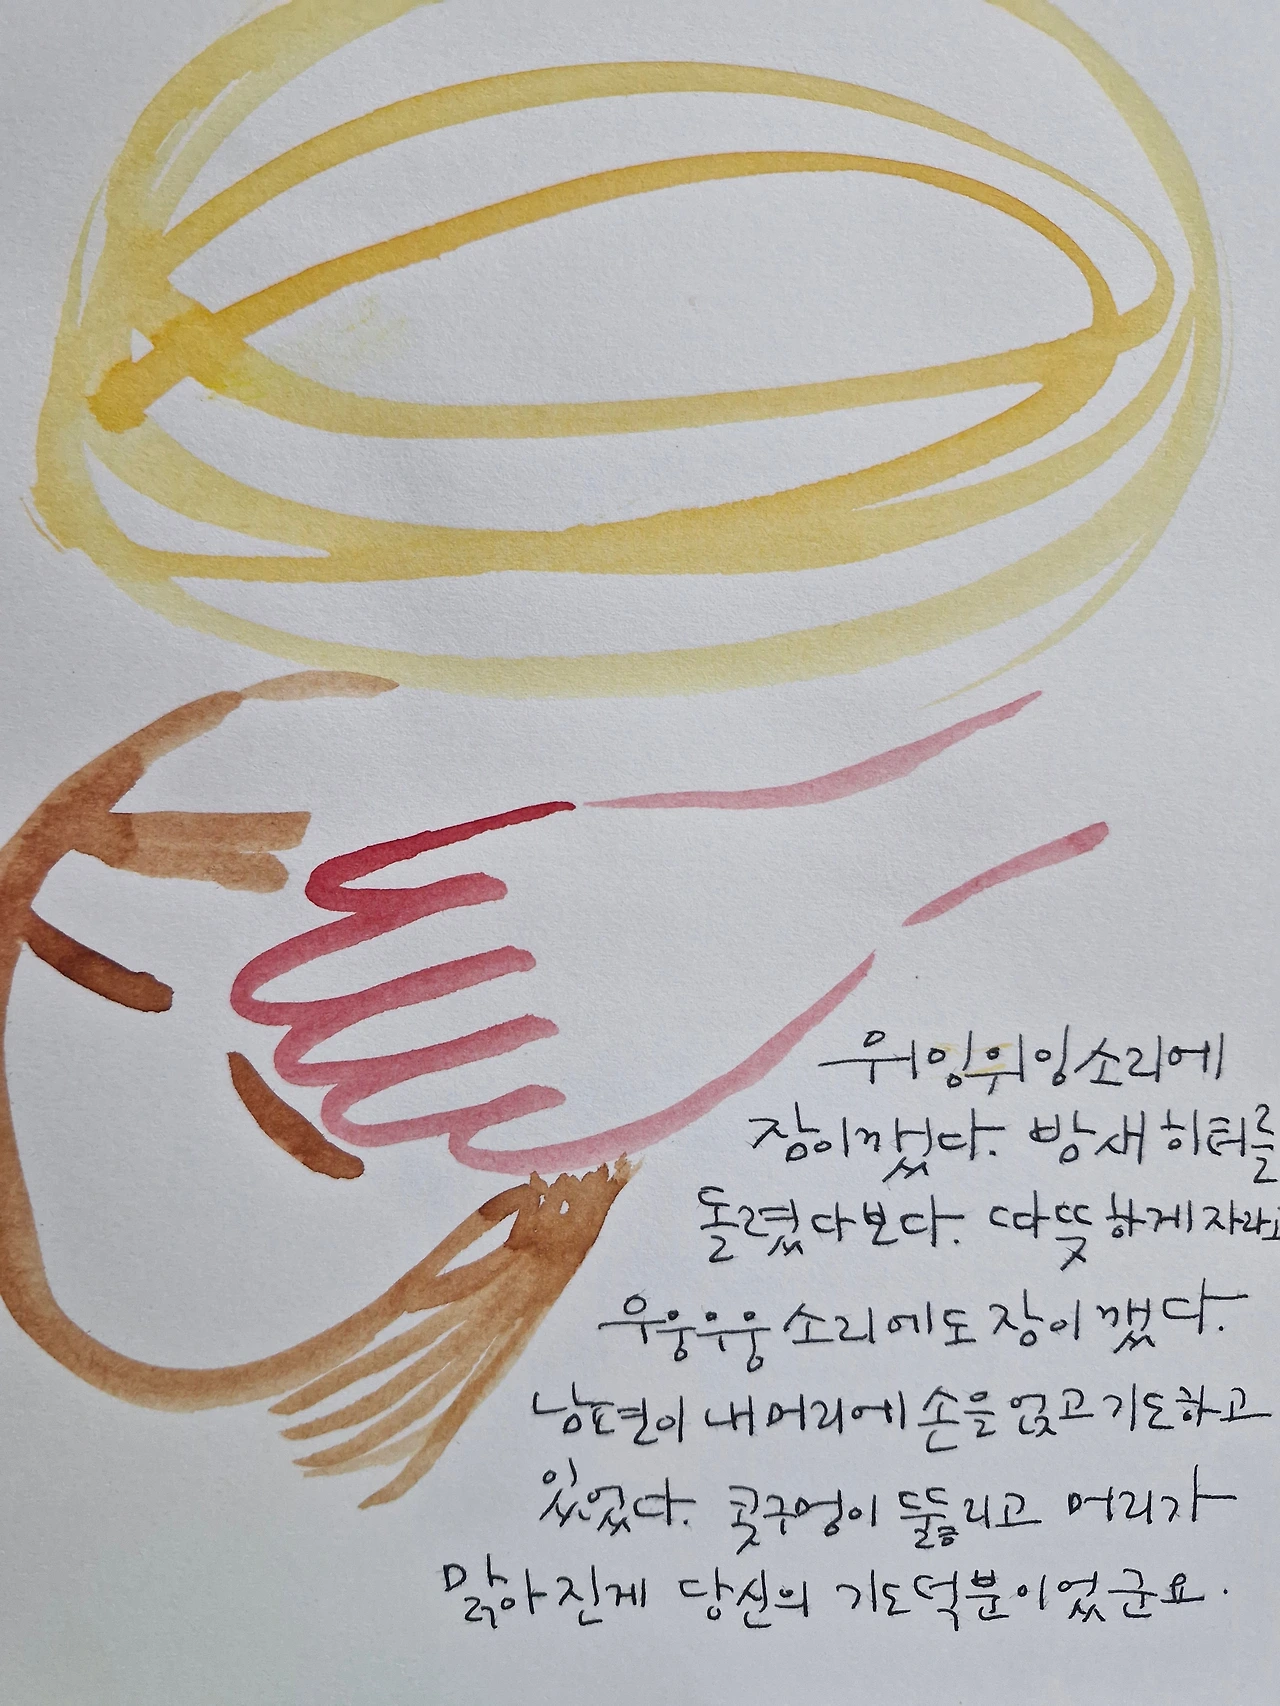 위잉위잉소리에
잠이깼다. 밤새히터를
돌렸다보다. 따뜻하게자라고
우웅우웅소리에도잠이깼다.
남편이 내머리에손을얹고기도하고
있었다. 콧구멍이 뚫리고 머리가
맑아진게 당신의 기도덕분이었군요.